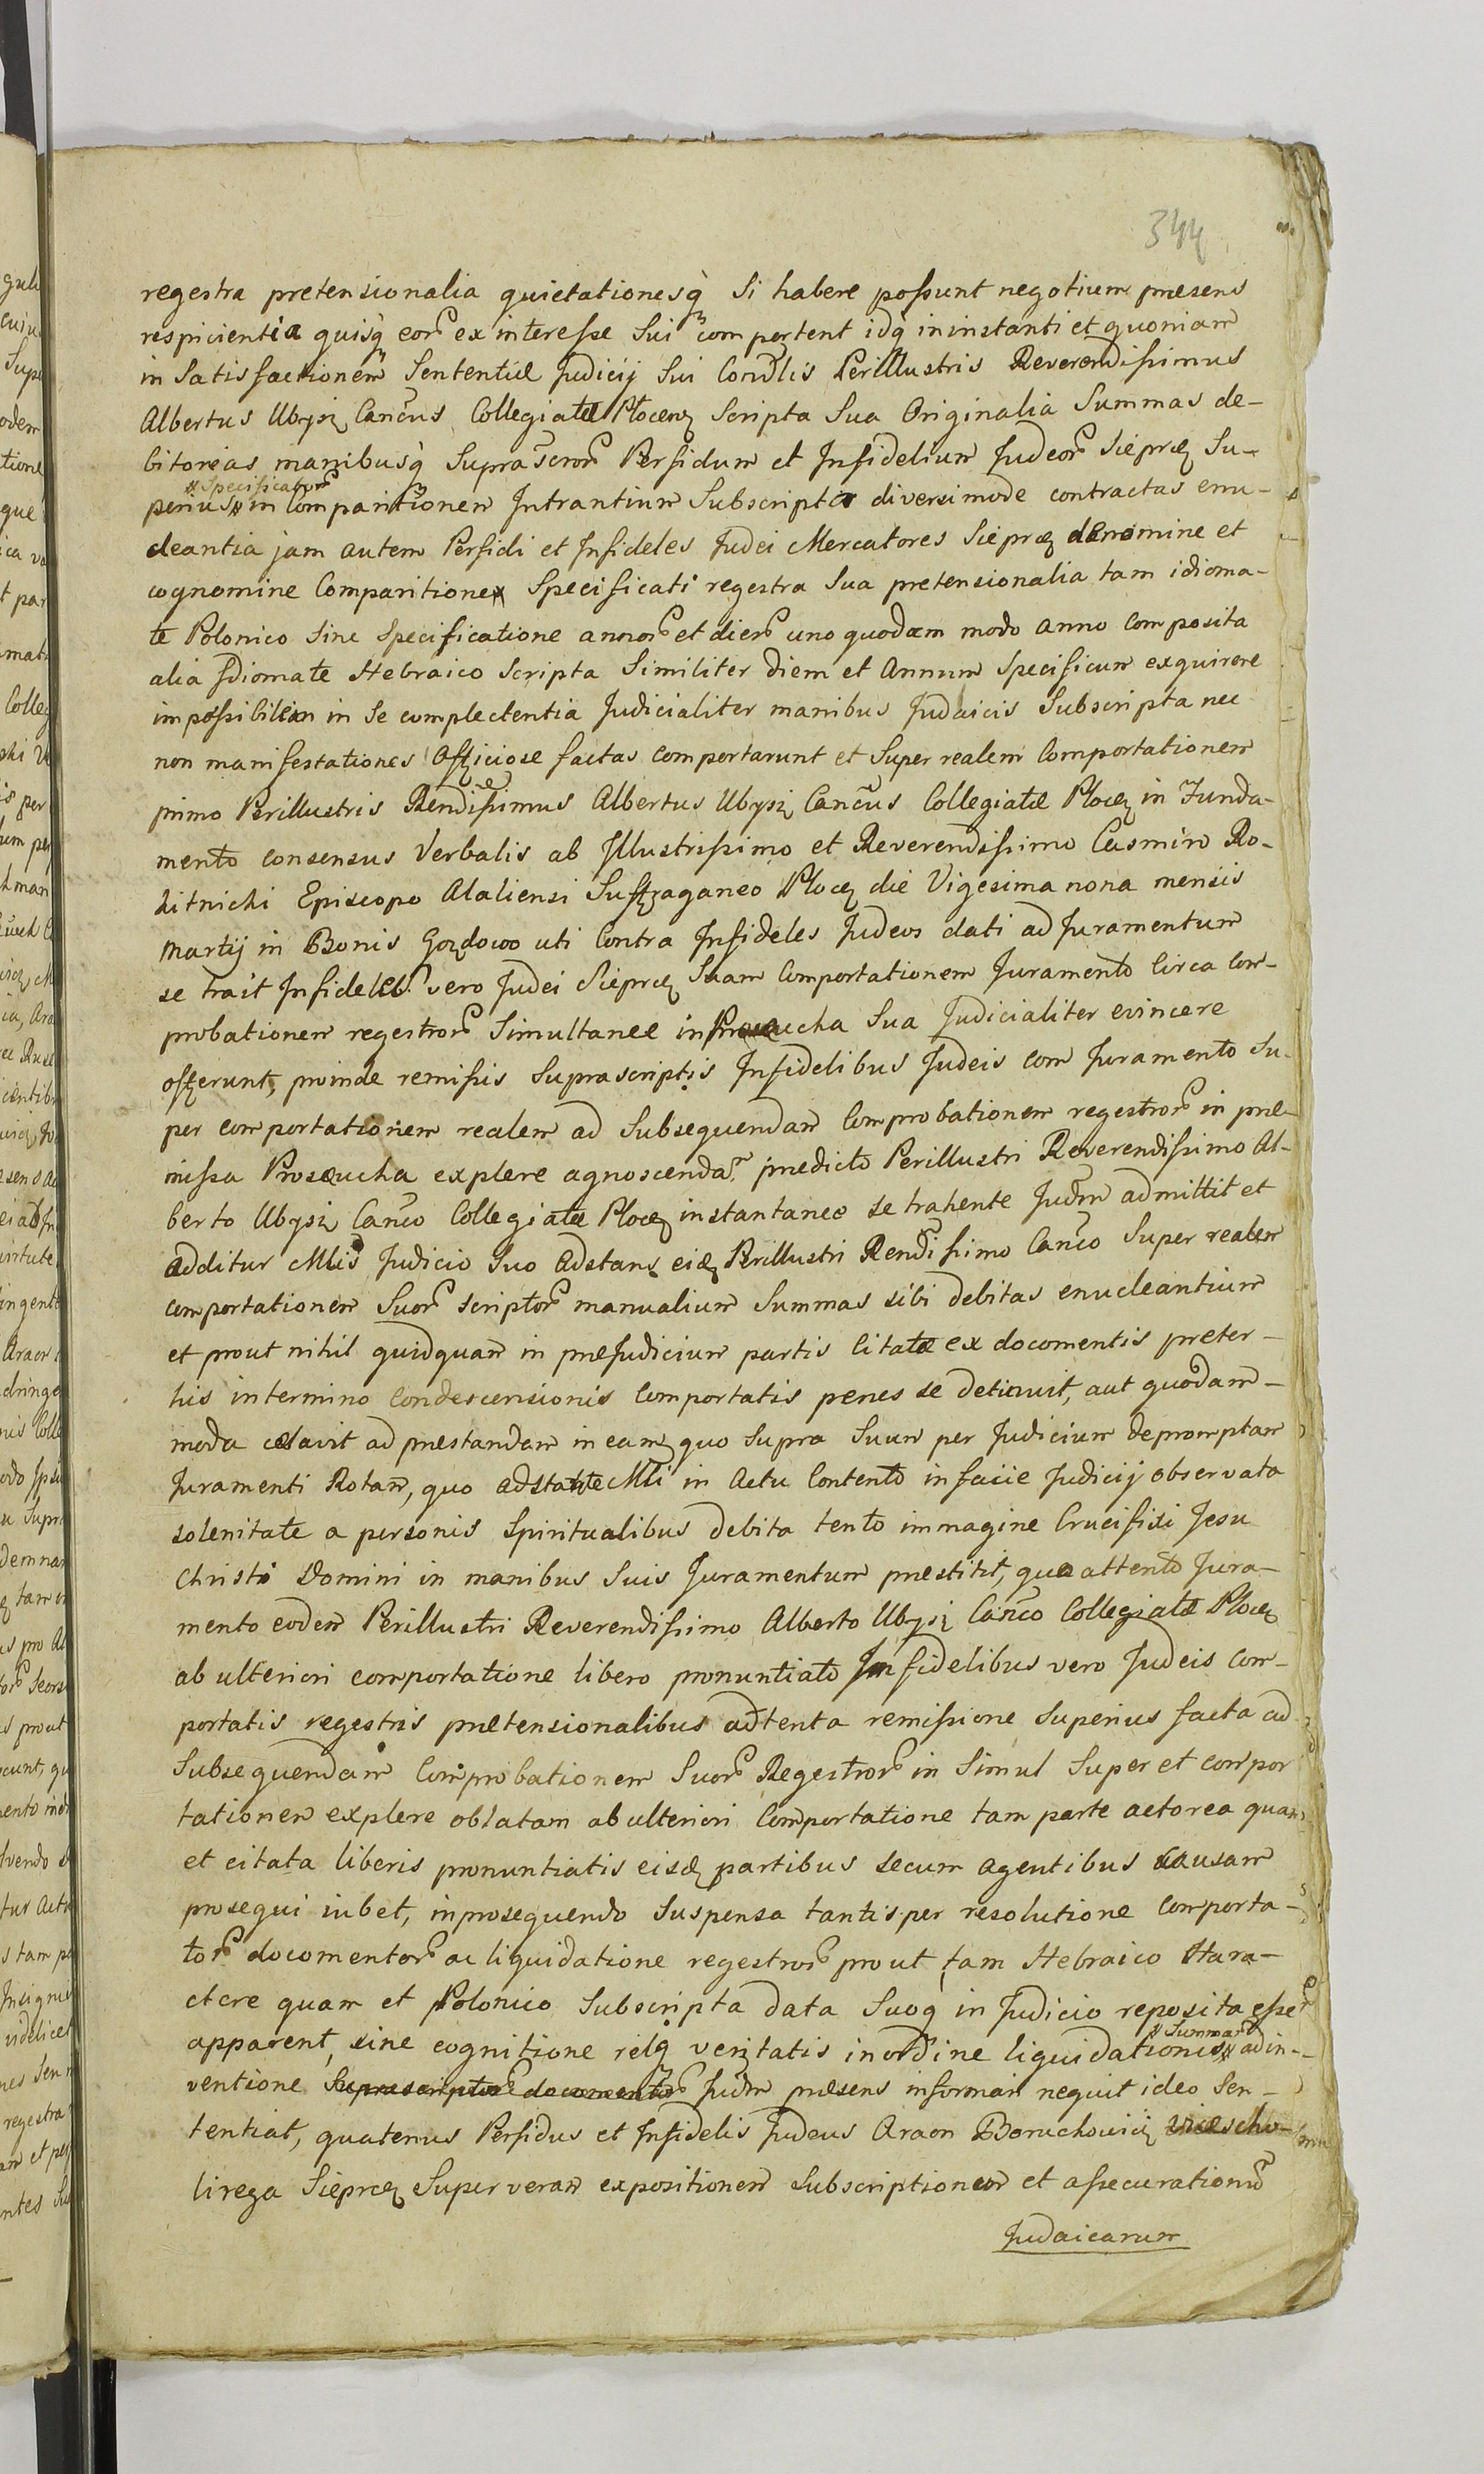 344
regestra pretensionalia quietationesq̀ Si habere possunt negotium presens
respicientia quisq̀ eor̃ ex interesse Sui comportent idq̀ in instanti et quoniam
in Satisfactionem Sententiæ Judicij Sui Cond̃lis PerIllustris Reverendissimus
Albertus Ubysz Can̄cus Collegiatæ Plocen̄ Scripta Sua Originalia Summas de-
bitoreas manibusq̀ Suprascr̄or̃ Perfidum et Infidelium Judeor̃ Sieprcz Su-
# Specificator̃
perius # in Comparitionem Intrantium Subscripta diversimode contractas enu-
cleantia jam autem Perfidi et Infideles Judei Mercatores Sieprcz de nomine et
cognomine Comparitione Specificati regestra Sua pretensionalia tam idioma-
te Polonico Sine Specificatione annor̃ et dier̃ uno quodam modo anno Composita
alia Idiomate Hebraico Scripta Similiter diem et Annum Specificum exquirere
impossibilem in Se complectentia Judicialiter manibus Judaicis Subscripta nec
non manifestationes Officiose factas comportarunt et Super realem Comportationem
primo Perillustris Rendissimus Albertus Ubysz Can̄cus Collegiatæ Plocz in Funda-
mento consensus Verbalis ab Illustrissimo et Reverendissimo Casmiro Ro-
kitnicki Episcopo Alaliensi Suffraganeo Plocz die Vigesima nona mensis
Martij in Bonis Gozdowo uti Contra Infideles Judeos dati ad Juramentum
se trait Infideles vero Judei Sieprcz Suam Comportationem Juramento Circa Com-
probationem regestror̃ Simultanee in Proseucha Sua Judicialiter evincere
offerunt, proinde remissis Suprascriptis Infidelibus Judeis com Juramento Su-
per comportationem realem ad Subsequendam Comprobationem regestror̃ in præ-
missa Proseucha explere agnoscenda. predicto Perillustri Reverendissimo Al-
berto Ubysz Can̄co Collegiatæ Plocz instantanee se trahente Jud̄m admittit et
additur Mlis Judicio Suo Adstans eid̃ Perillustri Rendissimo Can̄co Super realem
comportationem Suor̃ Scriptor̃ manualium Summas sibi debitas enucleantium
et prout nihil quidquam in præjudicium partis Citatæ ex documentis preter-
his in termino Condescensionis Comportatis penes se detinuit, aut quodam-
modo celavit ad prestandam in eam quo Supra Suum per Judicium depromptam
Juramenti Rotam, quo adstante Mli in Actu Contento in facie Judicij observata
solenitate a personis Spiritualibus debita tento immagine Crucifixi Jesu
Christi Domini in manibus Suis Juramentum præstitit, quo attento Jura-
mento eodem Perillustri Reverendissimo Alberto Ubysz Can̄co Collegiatæ Plocz
ab ulteriori comportatione libero pronuntiato Infidelibus vero Judeis Com-
portatis regestris prætensionalibus adtenta remissione Superius facta ad
Subsequendam Comprobationem Suor̃ Regestror̃ in Simul Super et compor
tationem explere oblatam ab ulteriori Comportatione tam parte actorea quam
et citata liberis pronuntiatis eisd̃ partibus secum agentibus causam
prosequi iubet, in prosequendo Suspensa tantisper resolutione Comporta-
tor̃ documentor̃ ac liquidatione regestror̃ prout tam Hebraico Hara-
ctere quam et Polonico Subscripta data Suoq̀ in Judicio reposita esse
apparent, sine cognitione relq̀ veritatis in ordine liquidationis # adin-
# Summar̃
ventione Suprascriptor̃ documentor̃ Jud̄m præsens informari nequit ideo Sen-
tentiat, quatenus Perfidus et Infidelis Judeus Araon Boruchowicz vices cho-
lirega Sieprcz Super veram expositionem Subscriptionem et assecurationū
Judaicarum